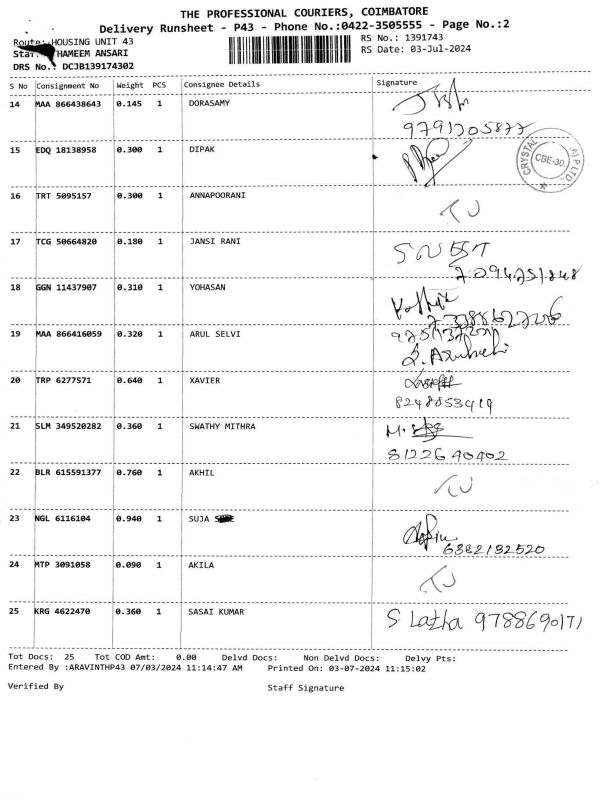 THE PROFESSIONAL COURIERS, COIMBATORE
Delivery Runsheet - P43 - Phone No.:0422-3505555 - Page No.:2
Route: HOUSING UNIT 43 RS No.: 1391743
THAMEEM ANSARI RS Date: 03-Jul-2024
DRS No.: DCJB139174302
S No Consignment No Weight PCS Consignee Details Signature
14 MAA 866438643 0.145 1 DORASAMY
15 EDQ 18138958 0.300 1 DIPAK
CRYSTAL CBE-30. P LTD.
16 TRT 5095157 0.300 1 ANNAPOORANI
17 TCG 50664820 0.180 1 JANSI RANI
7094751848
18 GGN 11437907 0.310 1 YOHASAN
19 MAA 866416059 0.320 1 ARUL SELVI
20 TRP 6277571 0.640 1 XAVIER
8248853419
21 SLM 349520282 0.360 1 SWATHY MITHRA
8122640402
22 BLR 615591377 0.760 1 AKHIL
23 NGL 6116104 0.940 1 SUJA
6382132520
24 MTP 3091058 0.090 1 AKILA
25 KRG 4622470 0.360 1 SASAI KUMAR S Latha 9788690171
Tot Docs: 25 Tot COD Amt: 0.00 Delvd Docs: Non Delvd Docs: Delvy Pts:
Entered By :ARAVINTHP43 07/03/2024 11:14:47 AM Printed On: 03-07-2024 11:15:02
Verified By Staff Signature